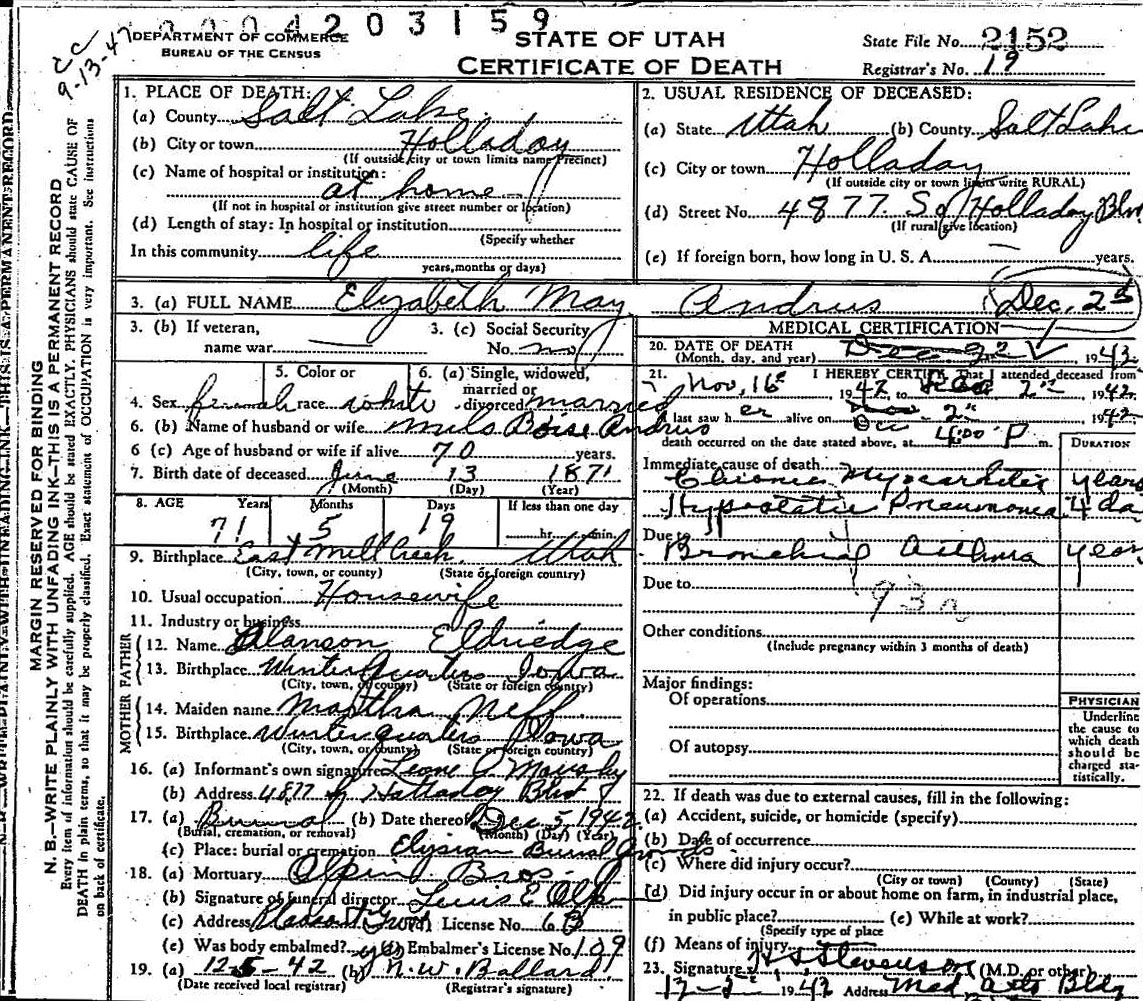 0004203159
DEPARTMENT OF COMMERCE
BUREAU OF THE CENSUS
STATE OF UTAH
CERTIFICATE OF DEATH
State File No. 2152
Registrar's No. 19
9-13-47
N. B.—WRITE PLAINLY WITH UNFADING INK—THIS IS A PERMANENT RECORD
MARGIN RESERVED FOR BINDING
N. B.—WRITE PLAINLY WITH UNFADING INK—THIS IS A PERMANENT RECORD
Every item of information should be carefully supplied. AGE should be stated EXACTLY. PHYSICIANS should state CAUSE OF
DEATH in plain terms, so that it may be properly classified. Exact statement of OCCUPATION is very important. See instructions
on back of certificate.
1. PLACE OF DEATH:
(a) County Salt Lake
(b) City or town Holladay
(If outside city or town limits name Precinct)
(c) Name of hospital or institution:
at home
(If not in hospital or institution give street number or location)
(d) Length of stay: In hospital or institution
(Specify whether
In this community life
years, months or days)
2. USUAL RESIDENCE OF DECEASED:
(a) State Utah (b) County Salt Lake
(c) City or town Holladay
(If outside city or town limits write RURAL)
(d) Street No. 4877 So. Holladay Blv
(If rural give location)
(e) If foreign born, how long in U. S. A. years.
3. (a) FULL NAME Elizabeth May Andrus
Dec. 2
3. (b) If veteran,
name war
3. (c) Social Security
No. no
4. Sex female
5. Color or
race white
6. (a) Single, widowed,
married or
divorced married
6. (b) Name of husband or wife Milo Boise Andrus
6 (c) Age of husband or wife if alive 70 years.
7. Birth date of deceased June 13 1871
(Month) (Day) (Year)
8. AGE Years Months Days If less than one day
71 5 19 hr. min.
9. Birthplace East Mill Creek Utah
(City, town, or county) (State or foreign country)
10. Usual occupation Housewife
11. Industry or business
FATHER
12. Name Alanson Eldriedge
13. Birthplace Winter Quarters Iowa
(City, town, or county) (State or foreign country)
MOTHER
14. Maiden name Martha Neff
15. Birthplace Winter quarters Iowa
(City, town, or county) (State or foreign country)
16. (a) Informant's own signature Leone A
(b) Address 4877 Holladay Blvd
17. (a) Burial (b) Date thereof Dec 5 1942
(Burial, cremation, or removal) (Month) (Day) (Year)
(c) Place: burial or cremation Elysian Burial Grounds
18. (a) Mortuary Olpin Bros.
(b) Signature of funeral director Louis E Olpin
(c) Address Pleasant Grove License No. 6B
(e) Was body embalmed? yes Embalmer's License No. 109
19. (a) 12-5-42 (b) N. W. Ballard
(Date received local registrar) (Registrar's signature)
MEDICAL CERTIFICATION
20. DATE OF DEATH
(Month, day, and year) Dec 2 1942
21. I HEREBY CERTIFY, That I attended deceased from
Nov. 16 1942, to Dec 2 1942
I last saw her alive on Dec 2 1942
death occurred on the date stated above, at 4:00 P m.
DURATION
Immediate cause of death
Chronic Myocarditis years
Hypostatic Pneumonia 4 da
Due to
Bronchial Asthma year
Due to
93a
Other conditions
(Include pregnancy within 3 months of death)
Major findings:
Of operations
Of autopsy
PHYSICIAN
Underline
the cause to
which death
should be
charged sta-
tistically.
22. If death was due to external causes, fill in the following:
(a) Accident, suicide, or homicide (specify)
(b) Date of occurrence
(c) Where did injury occur?
(City or town) (County) (State)
(d) Did injury occur in or about home on farm, in industrial place,
in public place? (e) While at work?
(Specify type of place
(f) Means of injury
23. Signature H S Stevenson (M.D. or other)
12-5- 1942 Address Med Arts Bldg